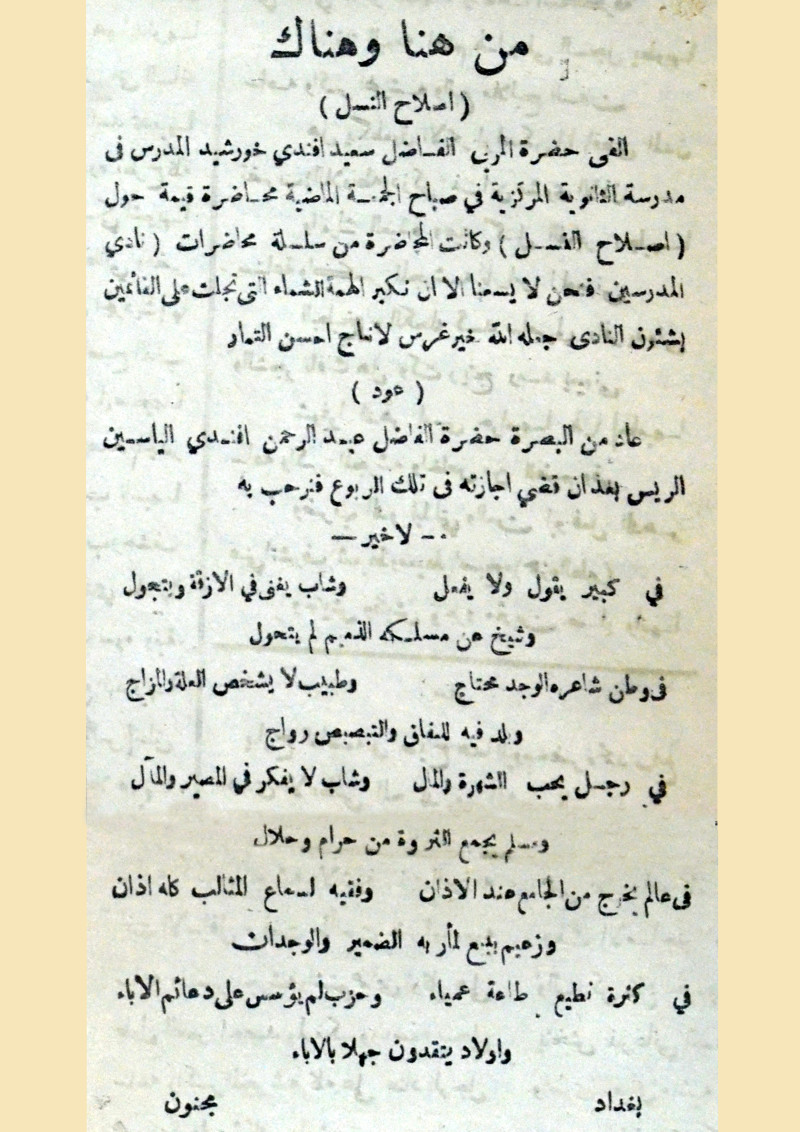 من هنا وهناك
( اصلاح النسل )
القى حضرة المربي الفاضل سعيد افندي خورشيد المدرس فى
مدرسة الثانوية المركزية في صباح الجمعة الماضية محاضرة قيمة حول
( اصلاح النسل ) وكانت المحاضرة من سلسلة محاضرات ( نادي
المدرسين فنحن لا يسعنا الا ان نكبر الهمة الشماء التى تجلت على القائمين
بشئون النادى جعله الله خير غرس لانتاج احسن الثمار
( عود )
عاد من البصرة حضرة الفاضل عبد الرحمن افندي الياسين
الريس بعد ان قضي اجازته فى تلك الربوع فنرحب به
— لا خير —
في كبير يقول ولا يفعل وشاب يفنى في الازقة ويتجول
وشيخ عن مسلكه الذميم لم يتحول
فى وطن شاعره الوجد محتاج وطبيب لا يشخص العلة والمزاج
وبلد فيه للنفاق والتبصبص رواج
في رجل يحب الشهرة والمال وشاب لا يفكر في المصير والمآل
ومسلم يجمع الثروة من حرام وحلال
فى عالم يخرج من الجامع عند الاذان وفقيه لسماع المثالب كله اذان
وزعيم يبيع لمأربه الضمير والوجدان
في كثرة تطيع طاعة عمياء وحزب لم يؤسس على دعائم الاباء
واولاد يتقدون جهلا بالاباء
بغداد مجنون